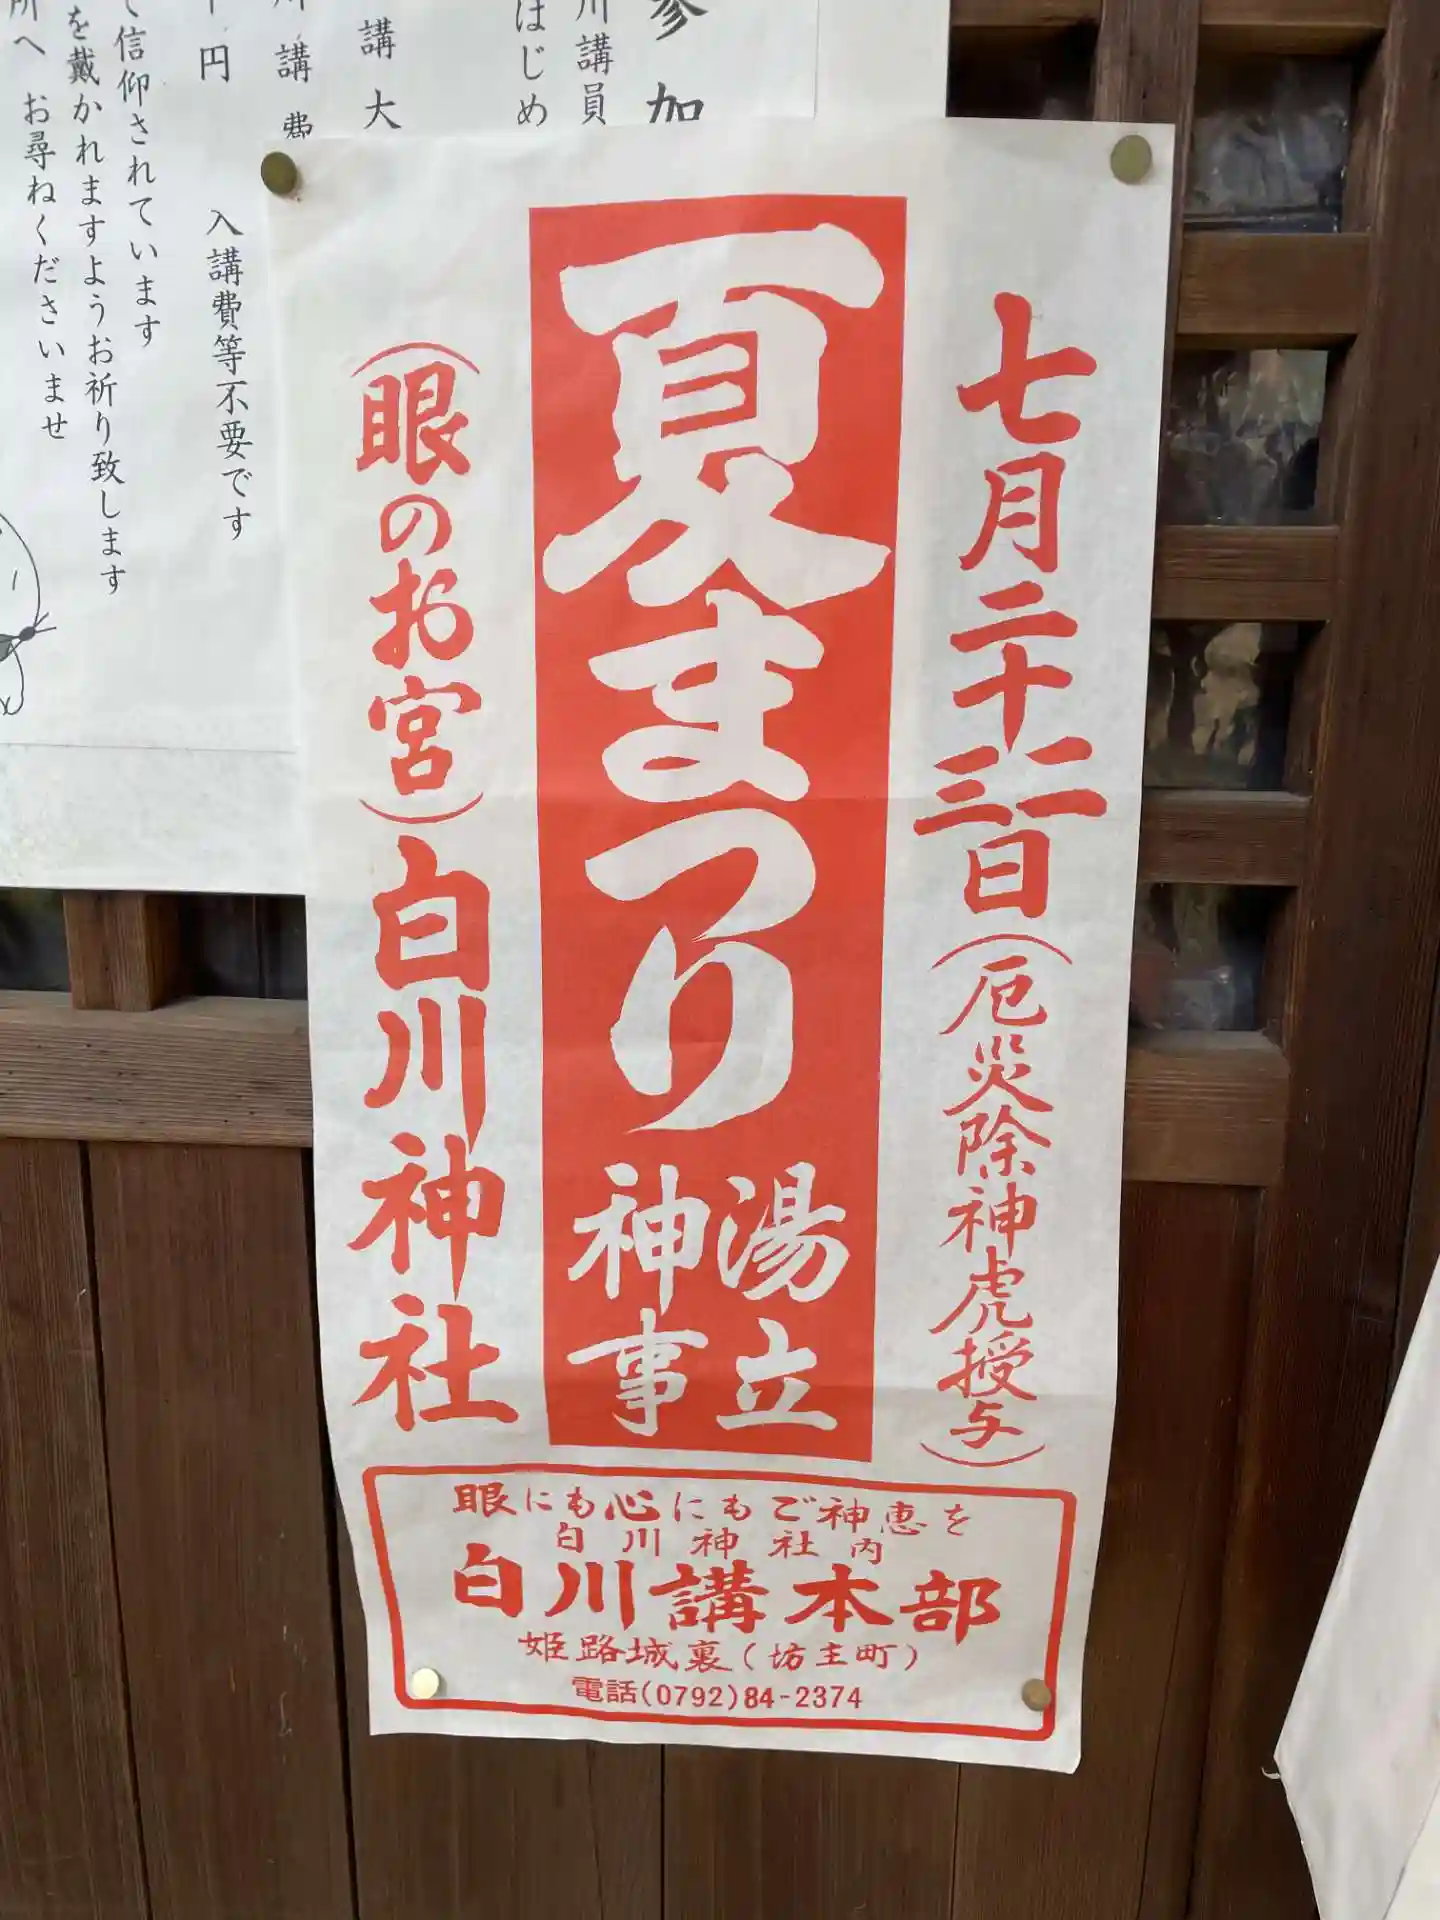 参加
川講員
はじめ
講大
講費
円 入講費等不要です
信仰されています
を戴かれますようお祈り致します
所へ お尋ねくださいませ
七月二十二三日(厄災除神虎授与)
夏まつり
湯立
神事
(眼のお宮)白川神社
眼にも心にもご神恵を
白川神社内
白川講本部
姫路城裏(坊主町)
電話(0792)84-2374